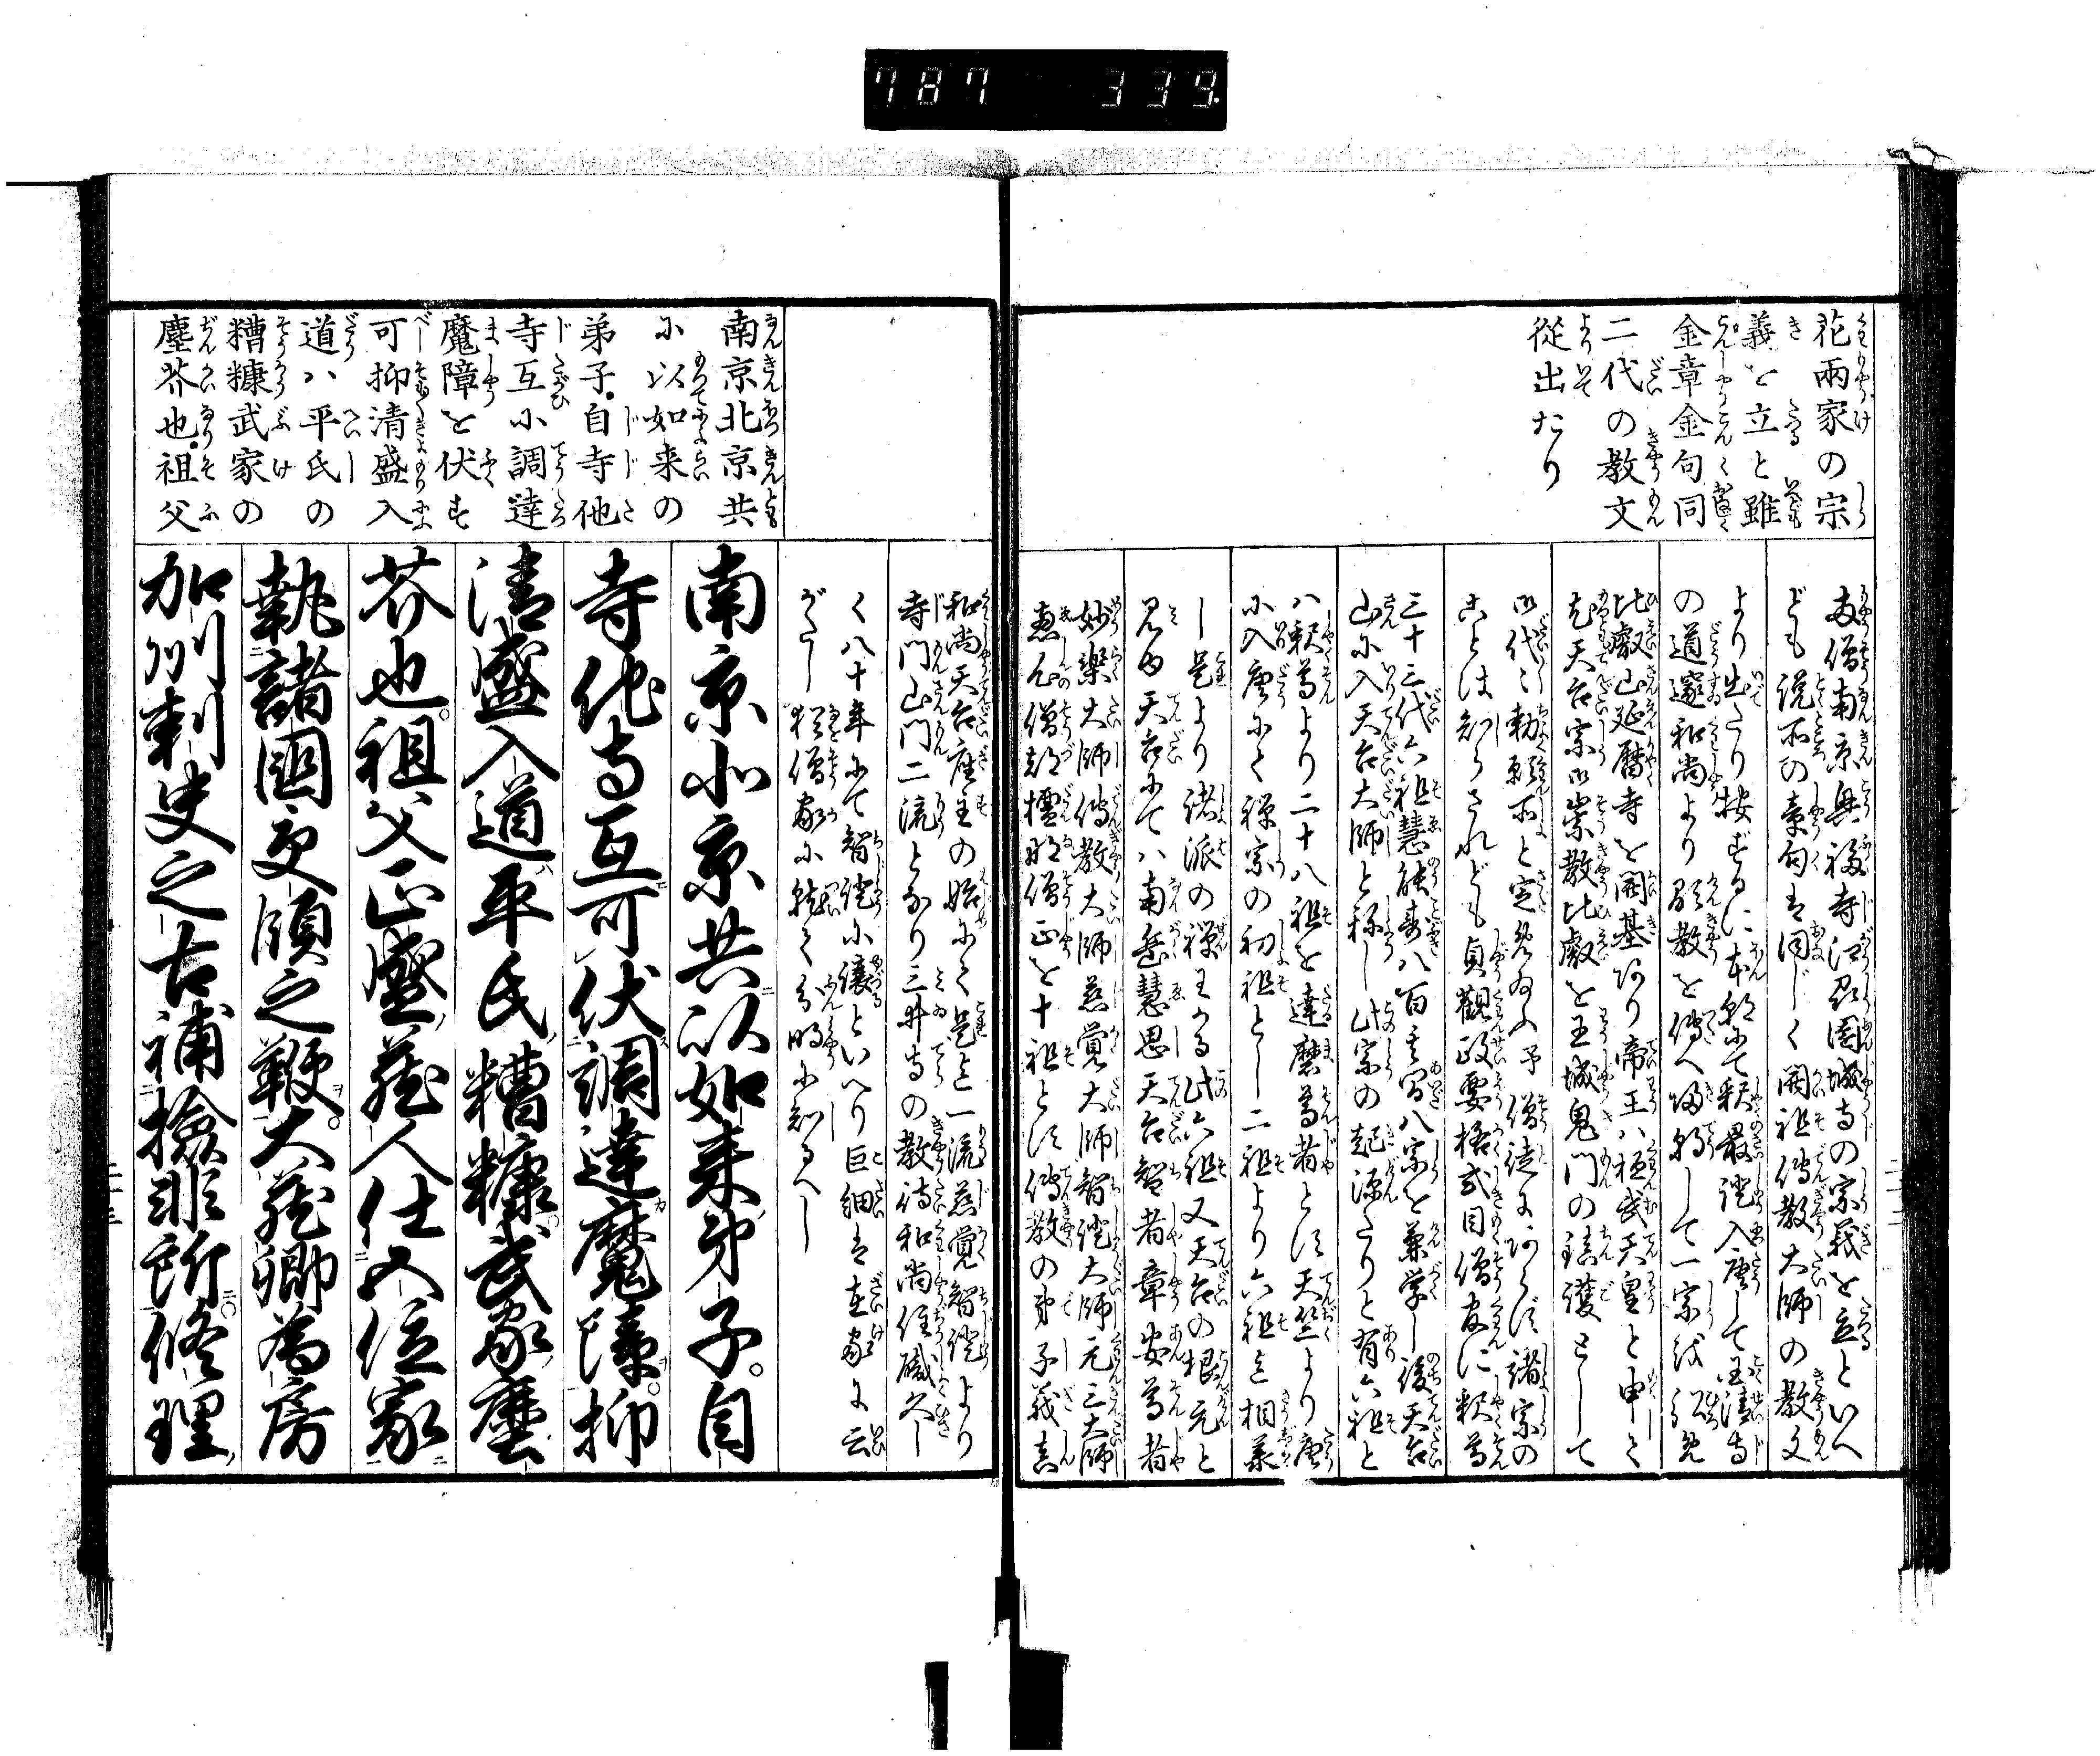 787 339.
花兩家の宗
義を立と雖
金章金句同
二代の教文
從出たり
故僧南京興福寺江州園城寺の宗義を立といへ
ども説所の章句は同じく開祖傳教大師の教文
より出たり按ずるに本朝にて釈最澄入唐して国清寺
の道邃和尚より顕教を傳へ帰朝して一宗を弘め
比叡山延暦寺を開基あり帝王ハ桓武天皇と申て
尤天台宗御崇教比叡を王城鬼門の鎮護として
御代々勅願所と定め給ふ予僧徒にあらず諸宗の
ことは知らされども貞觀政要格式目僧官に釈尊
三十三代六祖慧能寿八百年間八宗を兼学し後天台
山に入天台大師と称し此宗の起源たりと有六祖と
ハ釈尊より二十八祖を達磨尊者とす天竺より唐
に入唐にて禅宗の初祖とし二祖より六祖迄相兼
し是より諸派の禅わかる此六祖又天台の根元と
見ゆ天台にてハ南岳慧思天台智者章安尊者
妙樂大師傳教大師慈覚大師智證大師元三大師
恵心僧都檀那僧正を十祖とす傳教の弟子義真
和尚天台座主の始にて是迄一流慈覚智證より
寺門山門二流となり三井寺の教待和尚住職久し
く八十年にて智證に譲といへり巨細は在家に云
がたし猶僧家に就て分明に知るべし
南京北京共
に以如来の
弟子自寺他
寺互に調達
魔障を伏す
可抑清盛入
道ハ平氏の
糟糠武家の
塵芥也祖父
南京北京共以如来弟子自
寺他寺互可伏調達魔障抑
清盛入道平氏糟糠武家塵
芥也祖父正盛蔵人仕五位家
執諸國受領之鞭大蔵卿為房
加州刺史之古補撿非所修理